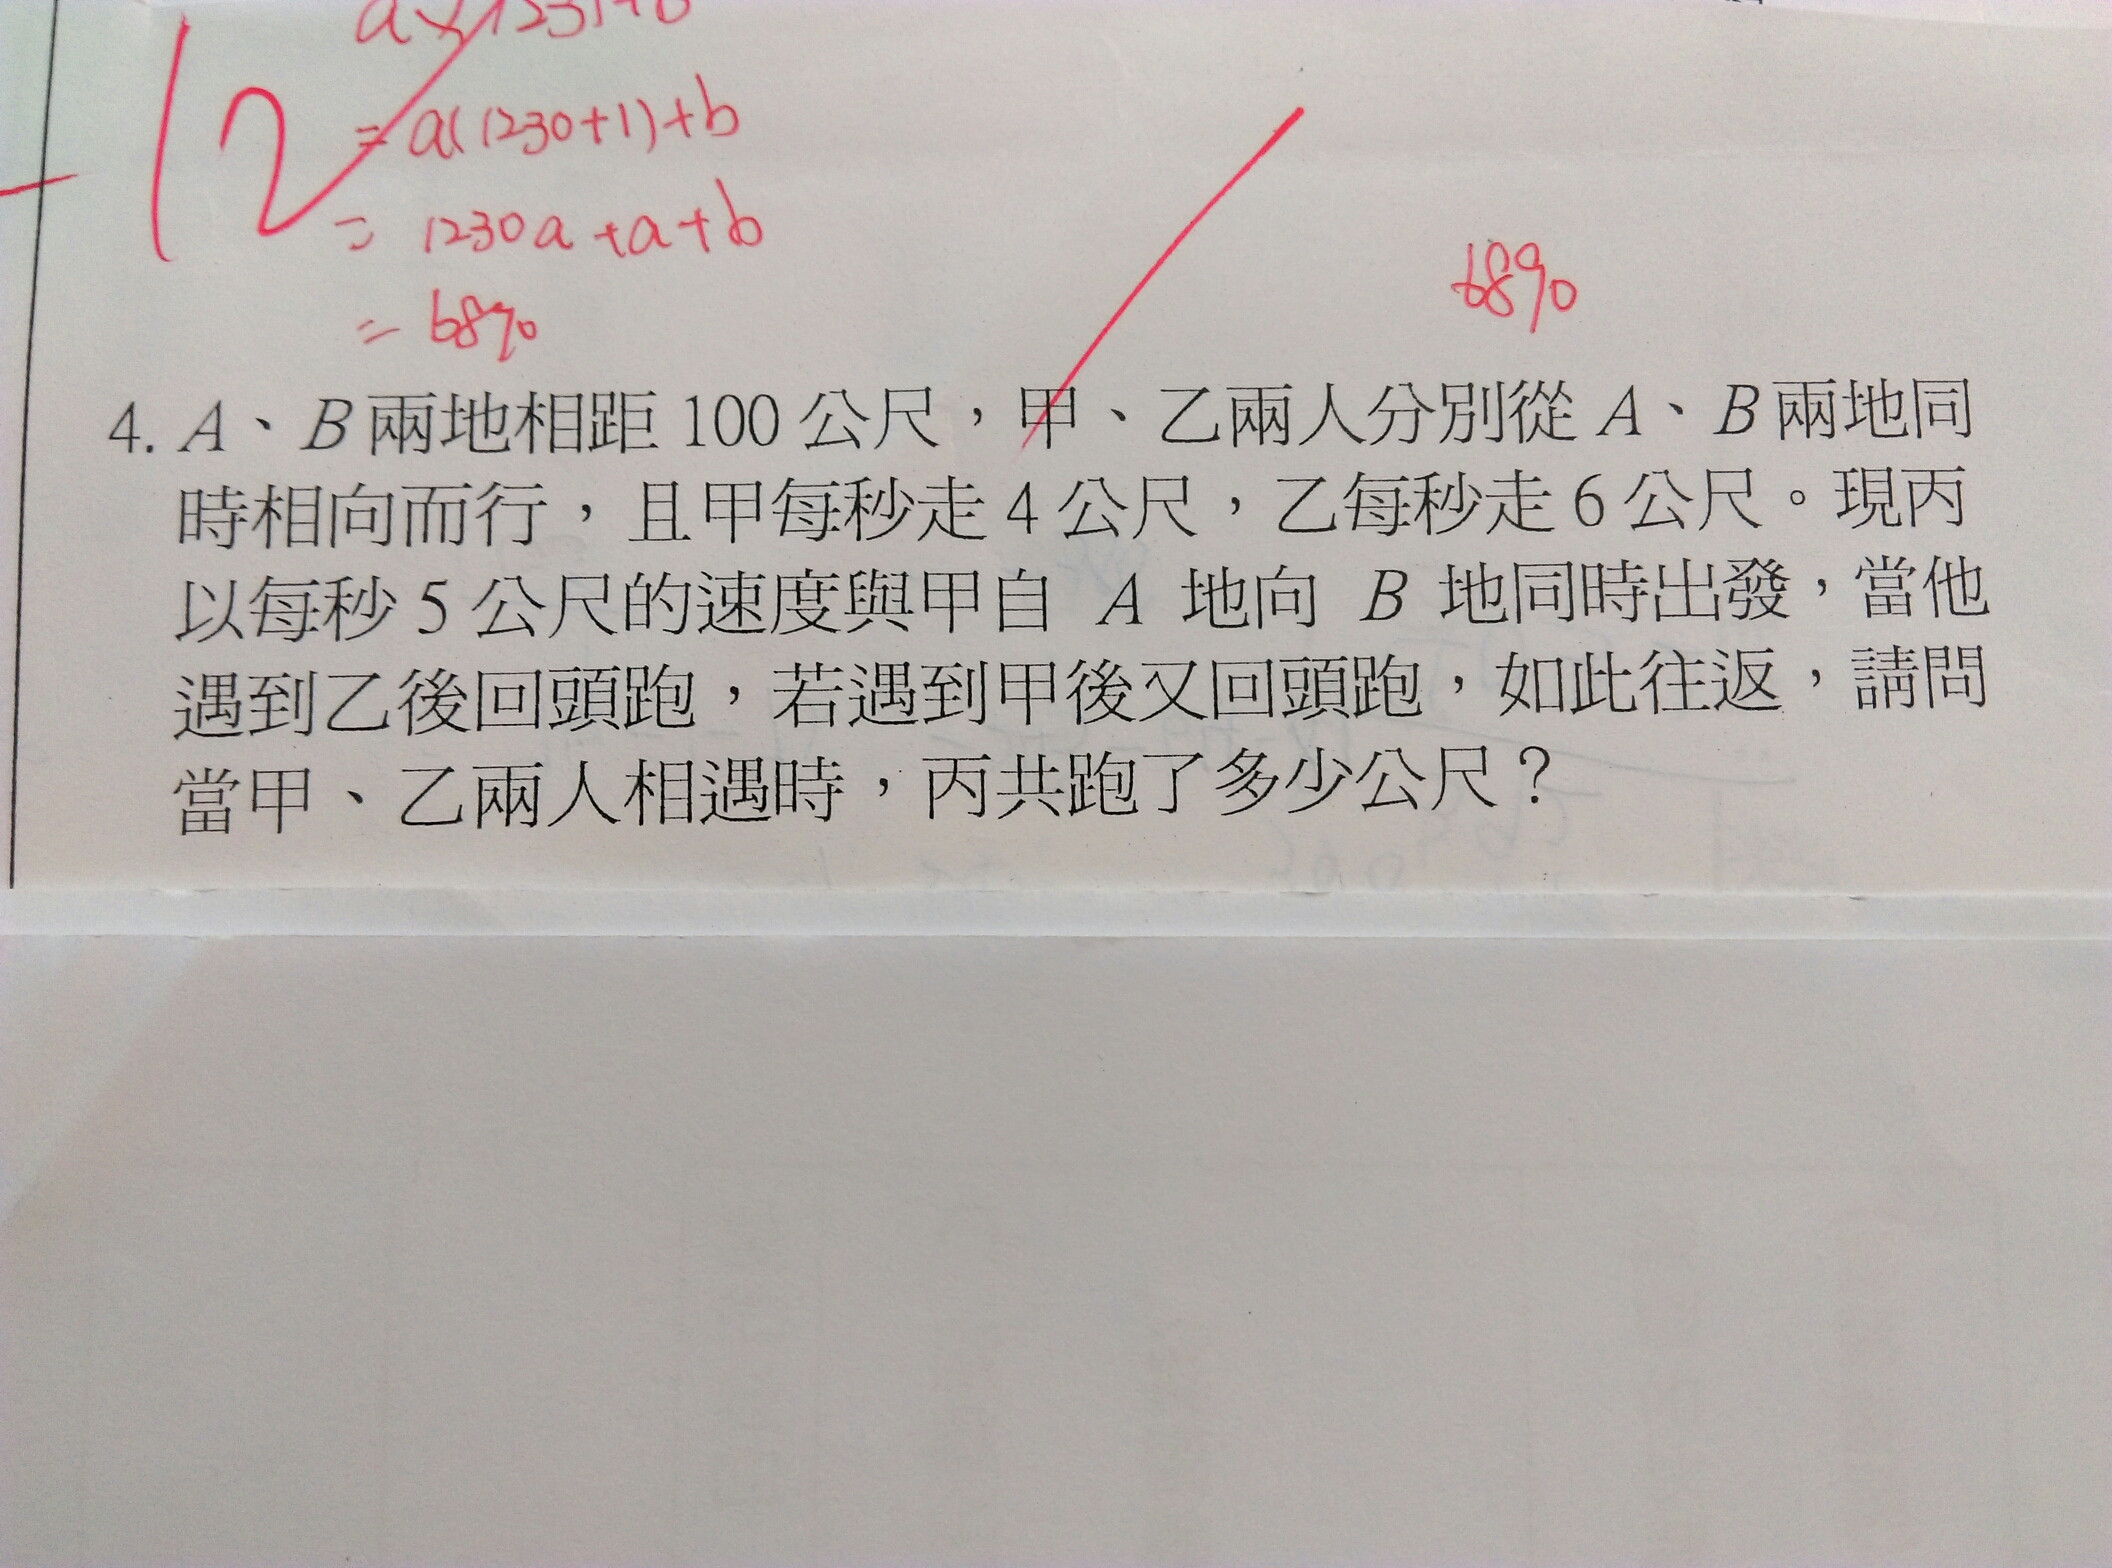 a×1231+b
-12
= a(1230+1)+b
= 1230a+a+b
6890
= 6890
4. A、B兩地相距 100 公尺，甲、乙兩人分別從 A、B兩地同
時相向而行，且甲每秒走 4 公尺，乙每秒走 6 公尺。現丙
以每秒 5 公尺的速度與甲自 A 地向 B 地同時出發，當他
遇到乙後回頭跑，若遇到甲後又回頭跑，如此往返，請問
當甲、乙兩人相遇時，丙共跑了多少公尺？